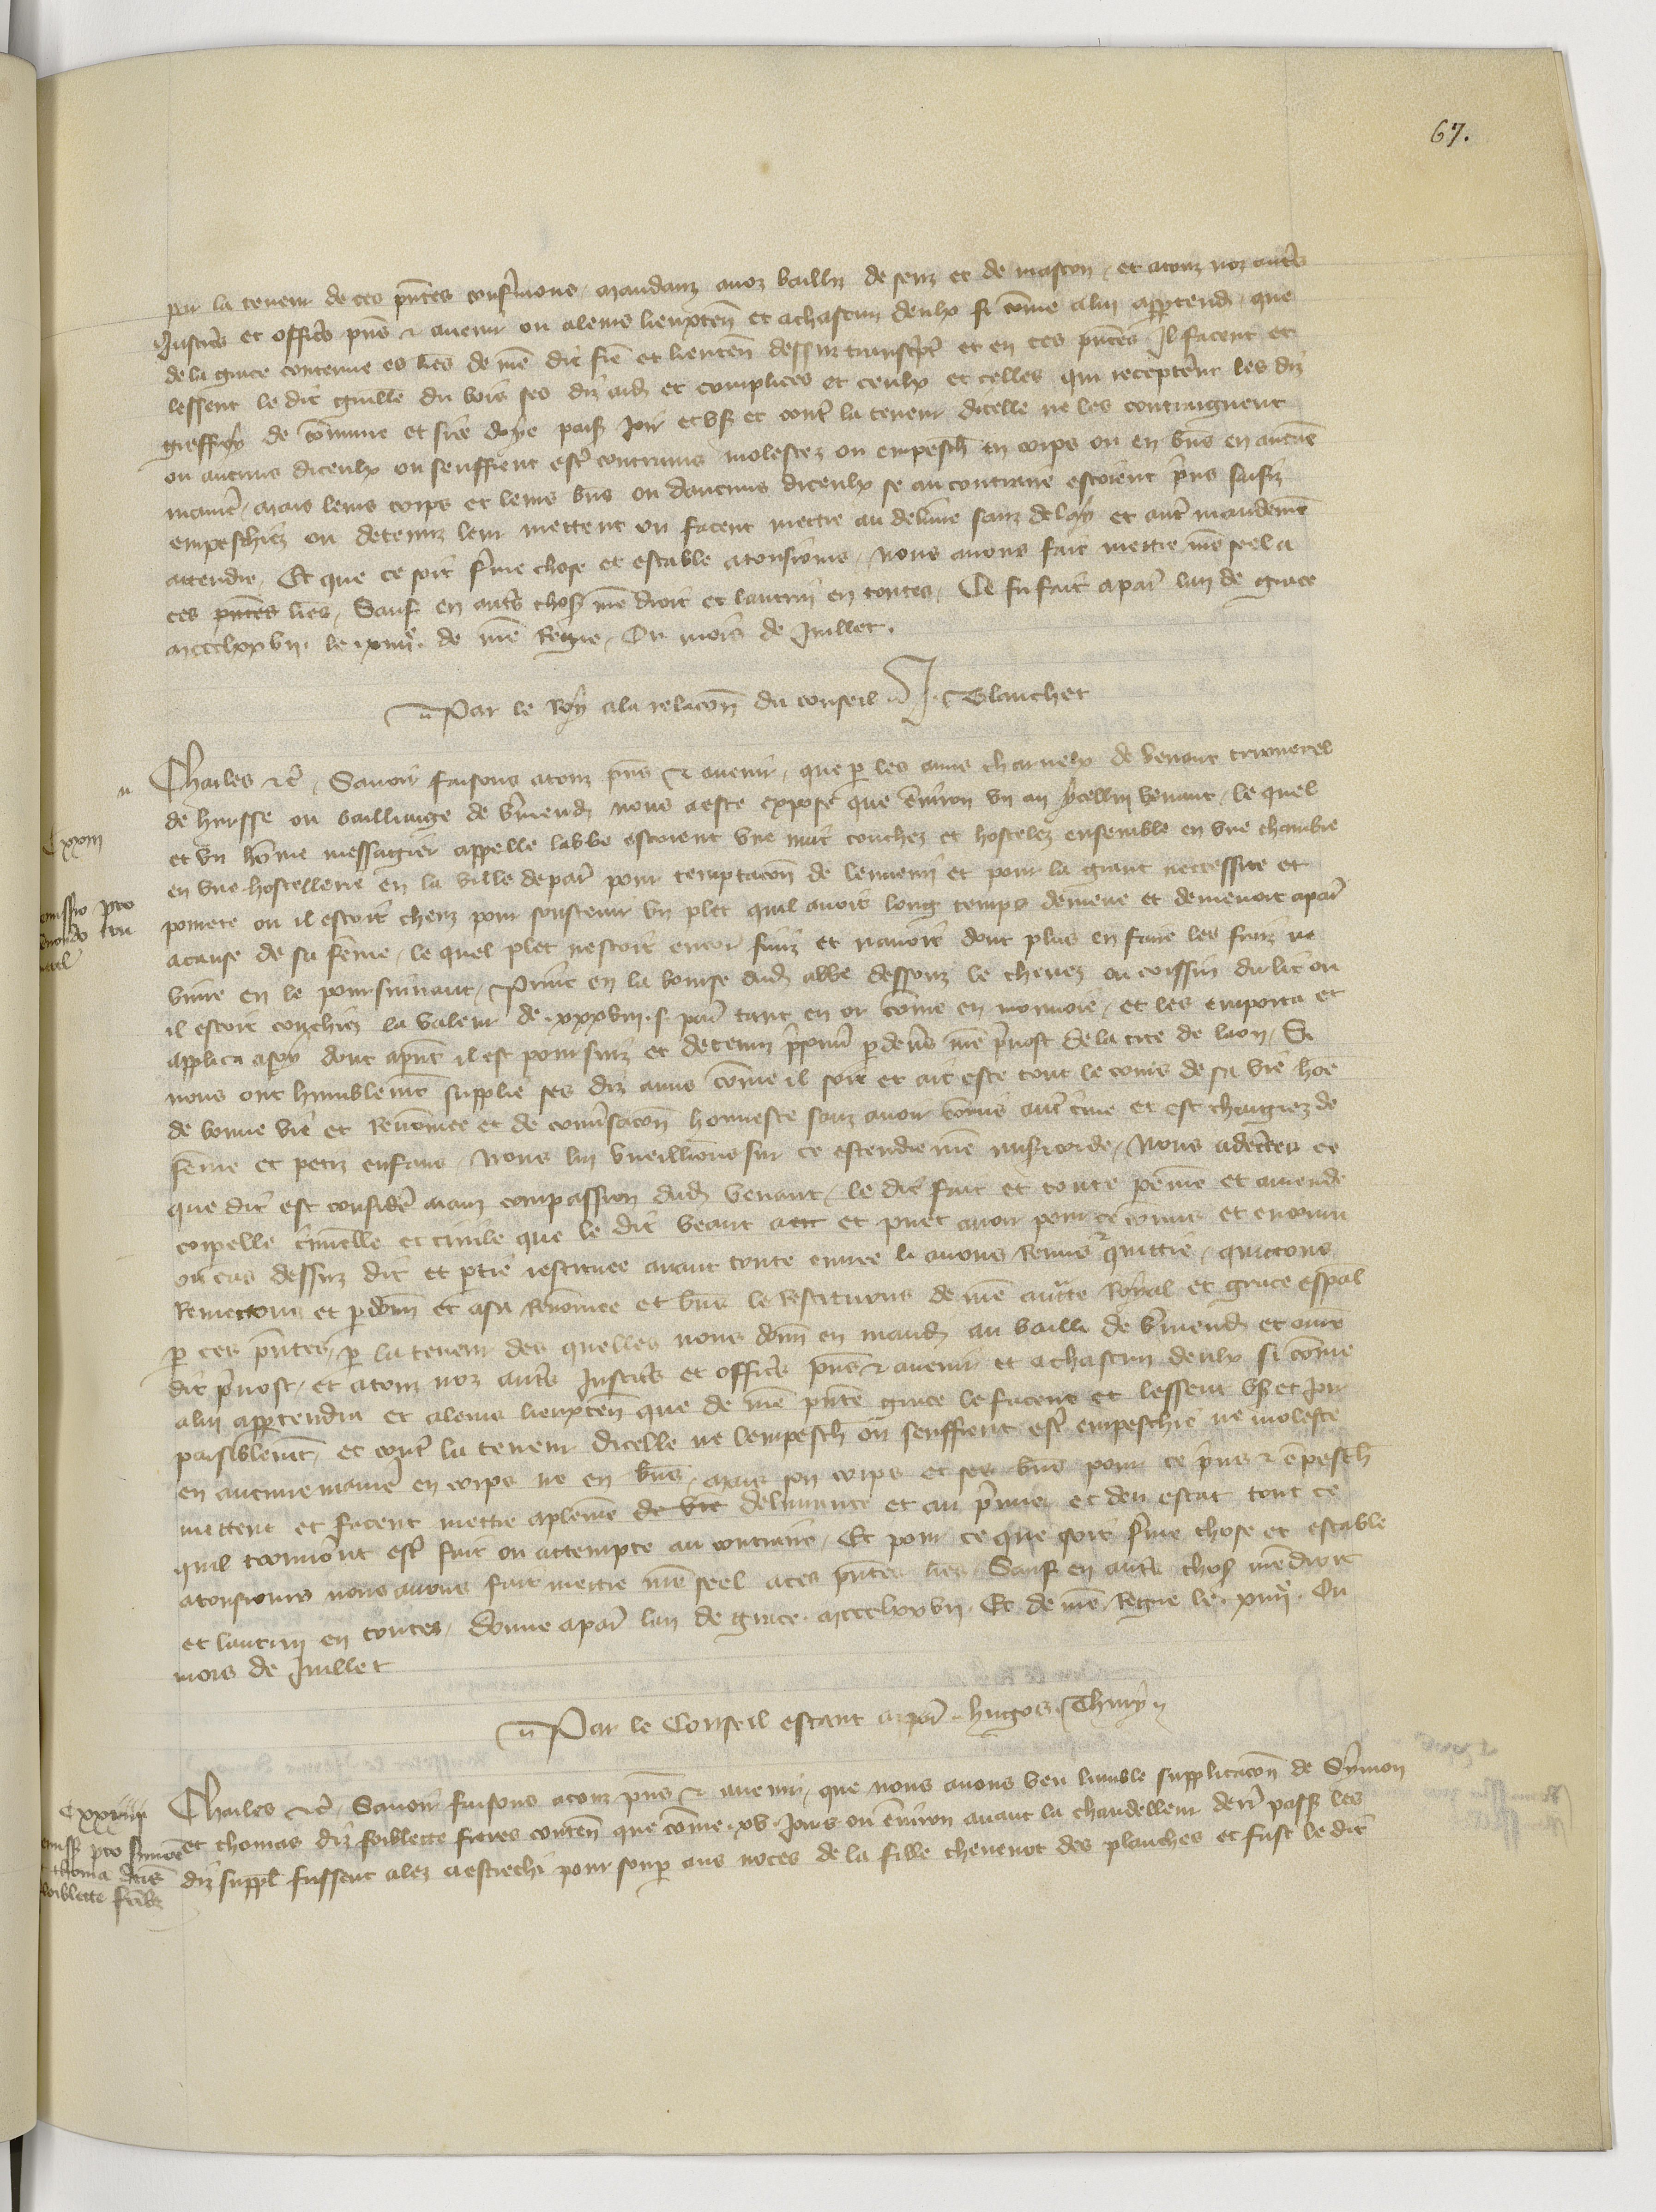 67.
par la teneur de ces pntes confermons, mandanz a noz baillis de senz et de mascon, et a touz noz autres
Justic et offic pns et avenir ou a leurs lieuxten et a chascun deulx si come a lui appertend, que
de la grace contenue es lres de nre dit frere et lieuten dessus transcpte et en ces pntes Il facent et
lessent le dit Guille du bois ses diz aid et complices et ceulx et celles qui recepterent les diz
de comune et paiss Joir et us et contre la teneur dicelle ne les contraignent
ou aucuns diceulx ou seuffrent estre contrains molestez ou empesch en corps ou en biens en aucune
maniere, mais leurs corps et leurs biens ou daucuns diceulx se au contraire estoient prins saisiz
empeschiez ou detenuz leur mettent ou facent mettre au delivre sanz delay et autre mandemt
attendre, Et que ce soit ferme chose et estable a tousjours, Nous avons fait mettre nre seel a
ces pntes lres, Sauf en autres choses nre droit et lautrui en toutes, Ce fu fait a paris lan de grace
mccclxxvii. le xiiiie. de nre Regne, Ou mois de Juillet.
Par le Roy a la relacion du conseil J. Blanchet
Charles etc, Savoir faisons a touz pns et avenir, que p les amis charnelx de venant
de ou bailliage de Vermend nous a este expose que environ un an ycellui venant, le quel
et un home messagier appelle labbe estoient une nuit couchez et hostelez ensemble en une chambre
en une hostellerie en la ville de paris pour temptacion de lennemi et pour la grant neccessite et
povrete ou il estoit cheuz pour soustenir un plet quil avoit long temps demene et demenoit a paris
a cause de sa feme, le quel plet nestoit encor finiz et navoit dont plus en faire les fraiz ne
vivre en le poursuivant, Print en la bourse dud abbe dessouz le chevez ou coissin du lit ou
il estoit couchiez la valeur de xxxviii. s. par tant en or come en monnoie, et les emporta et
applica a soy dont a pnt il est poursuiz et detenu prisonnier p devers nre prevost de la cite de laon, Si
nous ont humblemt supplie ses diz amis come il soit et ait este tout le cours de sa vie home
de bonne vie et Renomee et de conversacion honneste sanz avoir comis autre crime et est chargiez de
feme et petiz enfans, Nous lui vueillions sur ce estendre nre misericorde, Nous adecertes ce
que dit est consideré aianz compassion dud venant, le dit fait et toute peine et amende
corpelle criminelle et civile que le dit venant a et puet avoir pour ce encouru
ou cas dessus dit et ptie restituee avant toute euvre li avons Remis quittie, quittons
Remettons et pdon et a sa Renomee et biens le Restituons de nre auctte Royal et grace espal
p ces pntes, p la teneur des quelles nous don en mand au bailli de Vermend et nre
dit prevost, et a touz noz autres Justic et offic pns et avenir et a chascun deulx si come
a lui appertendra et a leurs lieuxten que de nre pnte grace le facent et lessent us et Joir
paisiblemt, et contre la teneur dicelle ne lempesch ou seuffrent estre empeschie ne moleste
en aucune maniere en corps ne en biens, mais son corps et ses biens pour ce prins et empesch
mettent et facent mettre a pleine delivrance et au premier et deu estat tout ce
quil trouveront estre fait ou attempte au contraire, Et pour ce que soit ferme chose et estable
a tousjours nous avons fait mettre nre seel a ces pntes lres, Sauf en autres choses nre droit
et lautrui en toutes, Donne a paris lan de grace mccclxxvii. Et de nre Regne le xiiiie. Ou
mois de Juillet
Par le Conseil estant a paris. hugos. Thury
Cxxiiii
Charles etc, Savoir faisons a touz pns et avenir, que nous avons veu lumble supplicacion de Symon
et thomas diz foiblette freres conten que come xv Jours ou environ avant la chandelleur derr pass les
diz suppl fussent alez a pour soup aus noces de la fille chevenot des planches et fust le dit